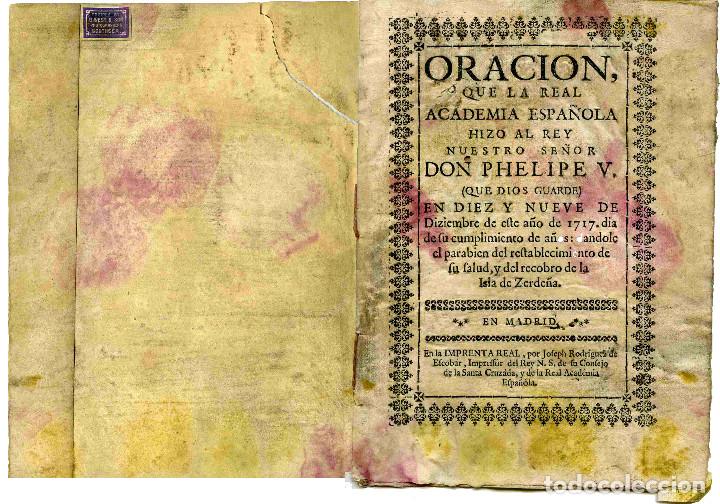 ORACION,
QUE LA REAL
ACADEMIA ESPAÑOLA
HIZO AL REY
NUESTRO SEÑOR
DON PHELIPE V.
(QUE DIOS GUARDE)
EN DIEZ Y NUEVE DE
Diziembre de este año de 1717. dia
de su cumplimiento de años: dandole
el parabien del restablecimiento de
su salud, y del recobro de la
Isla de Zerdeña.
EN MADRID.
En la IMPRENTA REAL, por Joseph Rodriguez de
Escobar, Impressor del Rey N. S. de su Consejo
de la Santa Cruzada, y de la Real Academia
Española.
todocoleccion.net